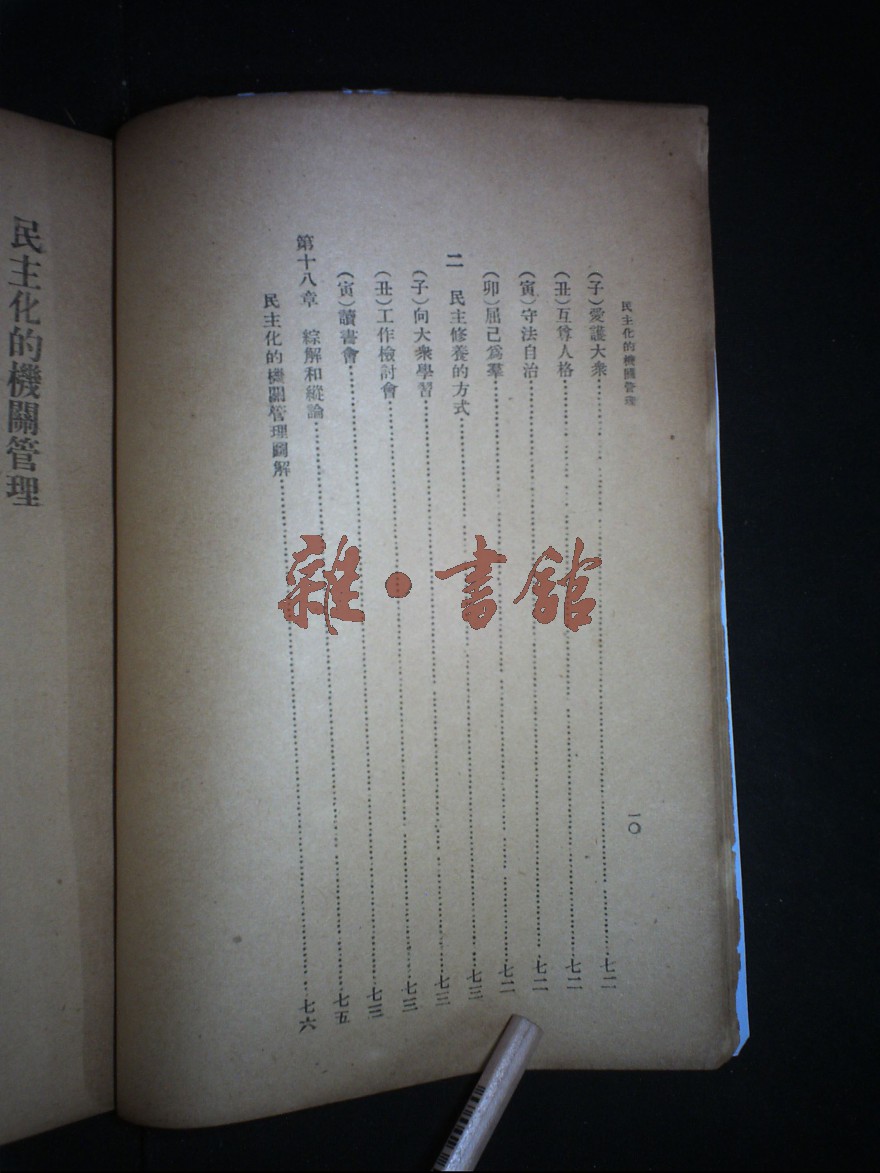 民主化的機關管理 一〇
(子)愛護大衆……七二
(丑)互尊人格……七二
(寅)守法自治……七二
(卯)屈己爲羣……七二
二 民主修養的方式……七三
(子)向大衆學習……七三
(丑)工作檢討會……七三
(寅)讀書會……七三
第十八章 綜解和縱論……七五
民主化的機關管理圖解……七六
民主化的機關管理
雜•書館